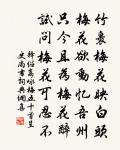 竹裏梅花映白頭
梅花欲動憶吾州
只今且為梅花醉
試問梅花可忍不
釋紹嵩詠梅五十首呈
史尚書詞典網喜